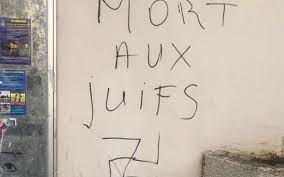 MORT
AUX
juifs